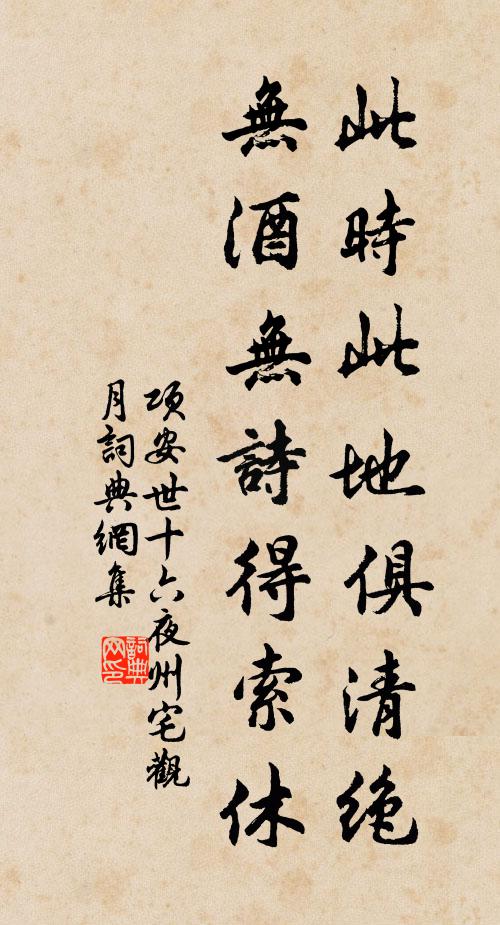 此時此地俱清绝
無酒無詩得索休
项安世十六夜州宅觀
月詞典網集
詞典网印